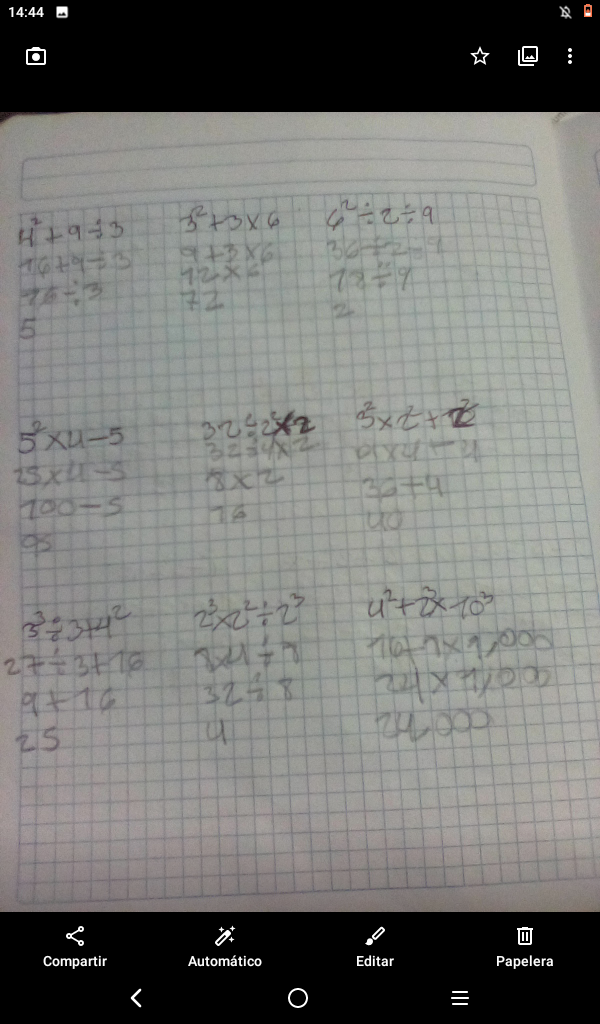 14:44
4² + 9 ÷ 3
16 + 9 ÷ 3
÷ 3
5
3² + 3 × 6
9 + 3 × 6
12 × 6
72
6² ÷ 2 ÷ 9
36 ÷ 2 ÷ 9
18 ÷ 9
2
5² × 4 - 5
25 × 4 - 5
100 - 5
95
32 ÷ 2² × 2
32 ÷ 4 × 2
8 × 2
16
3² × 2² + 2²
9 × 4 + 4
36 + 4
40
3³ ÷ 3 + 4²
27 ÷ 3 + 16
9 + 16
25
2³ × 2² ÷ 2³
8 × 4 ÷ 8
32 ÷ 8
4
4² + 2³ × 10³
16 + 8 × 1,000
24 × 1,000
24,000
Compartir
Automático
Editar
Papelera